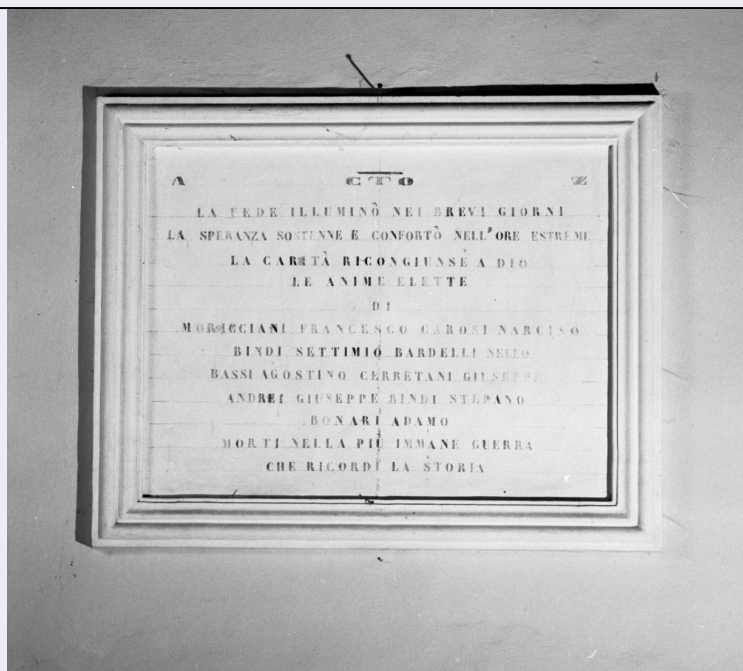 A CTO Z
LA FEDE ILLUMINÒ NEI BREVI GIORNI
LA SPERANZA SOSTENNE E CONFORTÒ NELL'ORE ESTREME
LA CARITÀ RICONGIUNSE A DIO
LE ANIME ELETTE
DI
MORICCIANI FRANCESCO CAROSI NARCISO
BINDI SETTIMIO BARDELLI NELLO
BASSI AGOSTINO CERRETANI GIUSEPPE
ANDREI GIUSEPPE BINDI STEFANO
BONARI ADAMO
MORTI NELLA PIÙ IMMANE GUERRA
CHE RICORDI LA STORIA